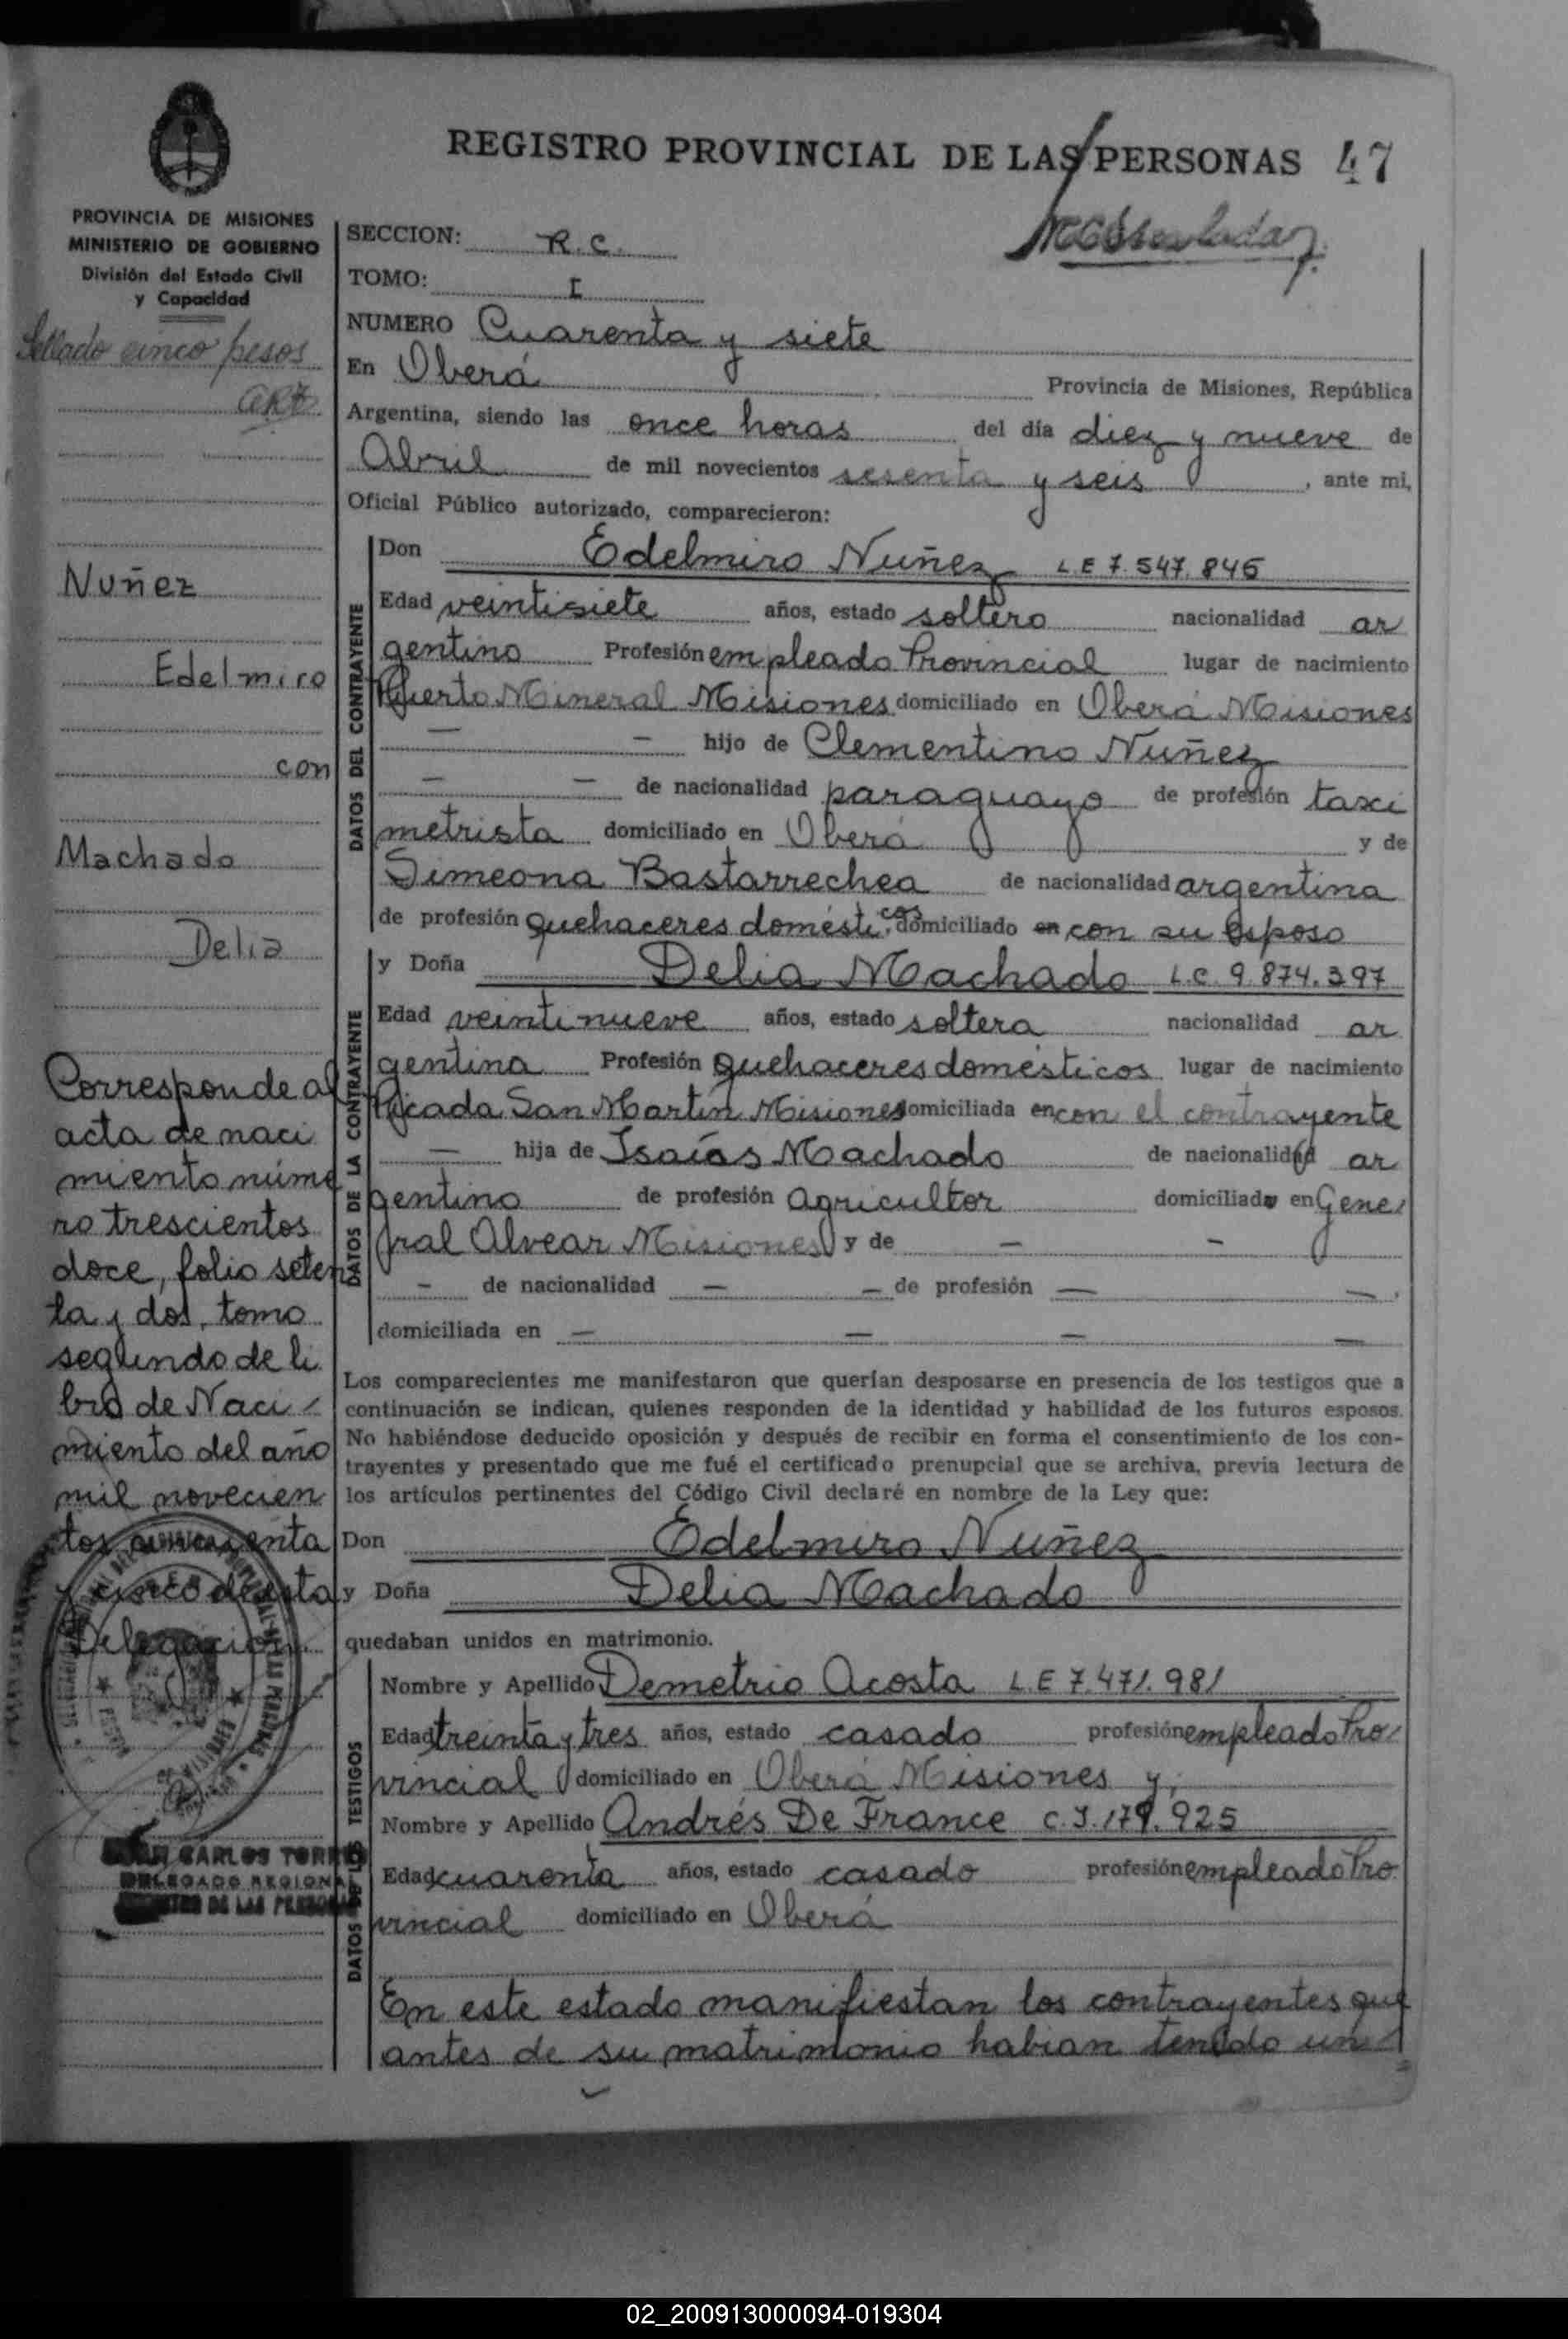 REGISTRO PROVINCIAL DE LAS PERSONAS 47
PROVINCIA DE MISIONES
MINISTERIO DE GOBIERNO
División del Estado Civil
y Capacidad
Sellado cinco pesos
Nuñez
Edelmiro
con
Machado
Delia
Corresponde al
acta de naci
miento núme
ro trescientos
doce, folio seten
ta y dos, tomo
segundo de li
bro de Naci
miento del año
mil novecien
tos cincuenta
y cinco de esta
Delegación
CARLOS TORRES
DELEGADO REGIONAL
DE LAS PERSONAS
SECCION: R.C.
TOMO: I
NUMERO Cuarenta y siete
En Oberá Provincia de Misiones, República
Argentina, siendo las once horas del día diez y nueve de
Abril de mil novecientos sesenta y seis, ante mi,
Oficial Público autorizado, comparecieron:
DATOS DEL CONTRAYENTE
Don Edelmiro Nuñez L.E 7.547.846
Edad veintisiete años, estado soltero nacionalidad ar
gentino Profesión empleado Provincial lugar de nacimiento
Puerto Mineral Misiones domiciliado en Oberá Misiones
— — hijo de Clementino Nuñez
— — de nacionalidad paraguayo de profesión taxi
metrista domiciliado en Oberá y de
Simeona Bastarrechea de nacionalidad argentina
de profesión quehaceres domésticos domiciliado en con su esposo
DATOS DE LA CONTRAYENTE
y Doña Delia Machado L.C. 9.874.397
Edad veintinueve años, estado soltera nacionalidad ar
gentina Profesión quehaceres domésticos lugar de nacimiento
Picada San Martín Misiones domiciliada en con el contrayente
— hija de Isaías Machado de nacionalidad ar
gentino de profesión agricultor domiciliado en Gene
ral Alvear Misiones y de — —
— de nacionalidad — — de profesión — —
domiciliada en — — — —
Los comparecientes me manifestaron que querían desposarse en presencia de los testigos que a
continuación se indican, quienes responden de la identidad y habilidad de los futuros esposos.
No habiéndose deducido oposición y después de recibir en forma el consentimiento de los con-
trayentes y presentado que me fué el certificado prenupcial que se archiva, previa lectura de
los artículos pertinentes del Código Civil declaré en nombre de la Ley que:
Don Edelmiro Nuñez
y Doña Delia Machado
quedaban unidos en matrimonio.
DATOS DE LOS TESTIGOS
Nombre y Apellido Demetrio Acosta L.E 7.471.981
Edad treinta y tres años, estado casado profesión empleado Pro
vincial domiciliado en Oberá Misiones y,
Nombre y Apellido Andrés De France C.I. 179.925
Edad cuarenta años, estado casado profesión empleado Pro
vincial domiciliado en Oberá
En este estado manifiestan los contrayentes que
antes de su matrimonio habian tenido un
02_200913000094-019304